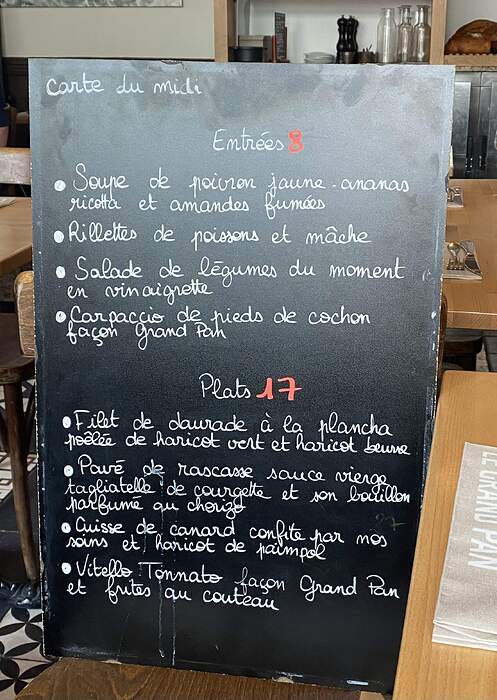 Carte du midi
Entrées 8
• Soupe de poivron jaune . ananas
ricotta et amandes fumées
• Rillettes de poissons et mâche
• Salade de légumes du moment
en vinaigrette
• Carpaccio de pieds de cochon
façon Grand Pan
Plats 17
• Filet de daurade à la plancha
poêlée de haricot vert et haricot beurre
• Pavé de rascasse sauce vierge
tagliatelle de courgette et son bouillon
parfumé au chorizo
• Cuisse de canard confite par nos
soins et haricot de paimpol
• Vitello Tonnato façon Grand Pan
et frites au couteau
LE GRAND PAN